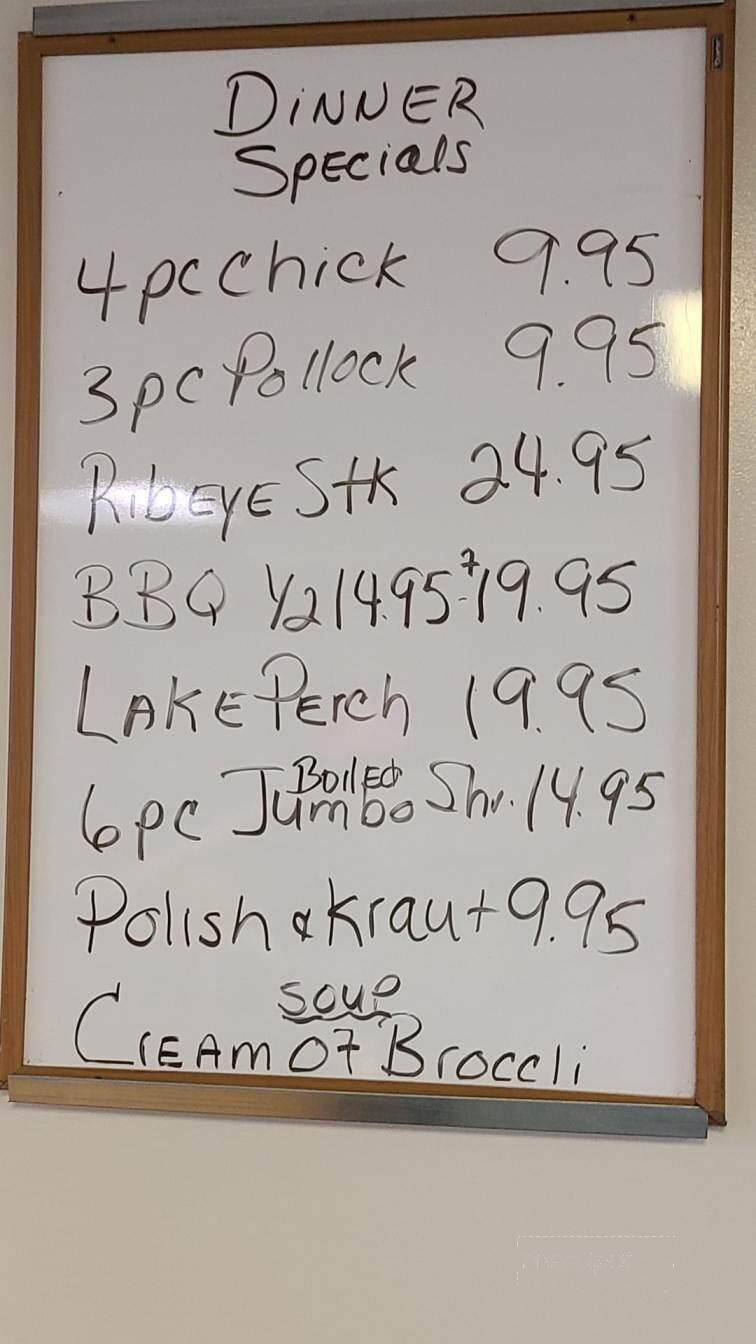 DiNNER
SPECialS
4pc Chick 9.95
3pc Pollock 9.95
RibEyE Stk 24.95
BBQ 1/2 14.95-19.95
LAKE PErch 19.95
6pc Jumbo Boiled Shr. 14.95
Polish & Kraut 9.95
soup
CrEAm OF Broccli